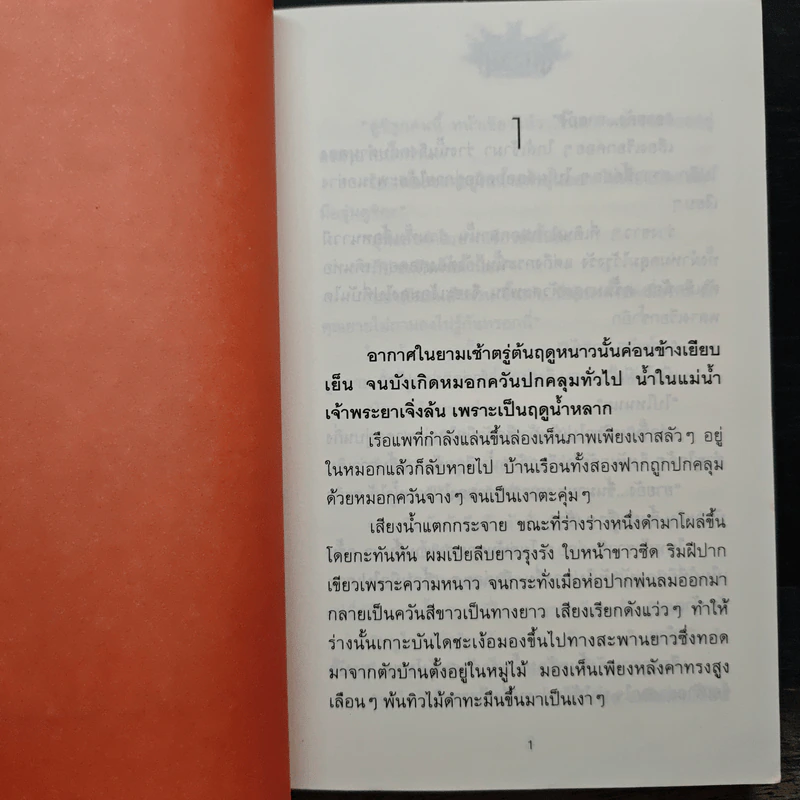 ๑
อากาศในยามเช้าตรู่ต้นฤดูหนาวนั้นค่อนข้างเยียบ
เย็น จนบังเกิดหมอกควันปกคลุมทั่วไป น้ำในแม่น้ำ
เจ้าพระยาเจิ่งล้น เพราะเป็นฤดูน้ำหลาก
เรือแพที่กำลังแล่นขึ้นล่องเห็นภาพเพียงเงาสลัวๆ อยู่
ในหมอกแล้วก็ลับหายไป บ้านเรือนทั้งสองฟากถูกปกคลุม
ด้วยหมอกควันจางๆ จนเป็นเงาตะคุ่มๆ
เสียงน้ำแตกกระจาย ขณะที่ร่างร่างหนึ่งดำมาโผล่ขึ้น
โดยกะทันหัน ผมเปียลีบยาวรุงรัง ใบหน้าขาวซีด ริมฝีปาก
เขียวเพราะความหนาว จนกระทั่งเมื่อห่อปากพ่นลมออกมา
กลายเป็นควันสีขาวเป็นทางยาว เสียงเรียกดังแว่วๆ ทำให้
ร่างนั้นเกาะบันไดชะเง้อมองขึ้นไปทางสะพานยาวซึ่งทอด
มาจากตัวบ้านตั้งอยู่ในหมู่ไม้ มองเห็นเพียงหลังคาทรงสูง
เลือนๆ พ้นทิวไม้ดำทะมึนขึ้นมาเป็นเงาๆ
1